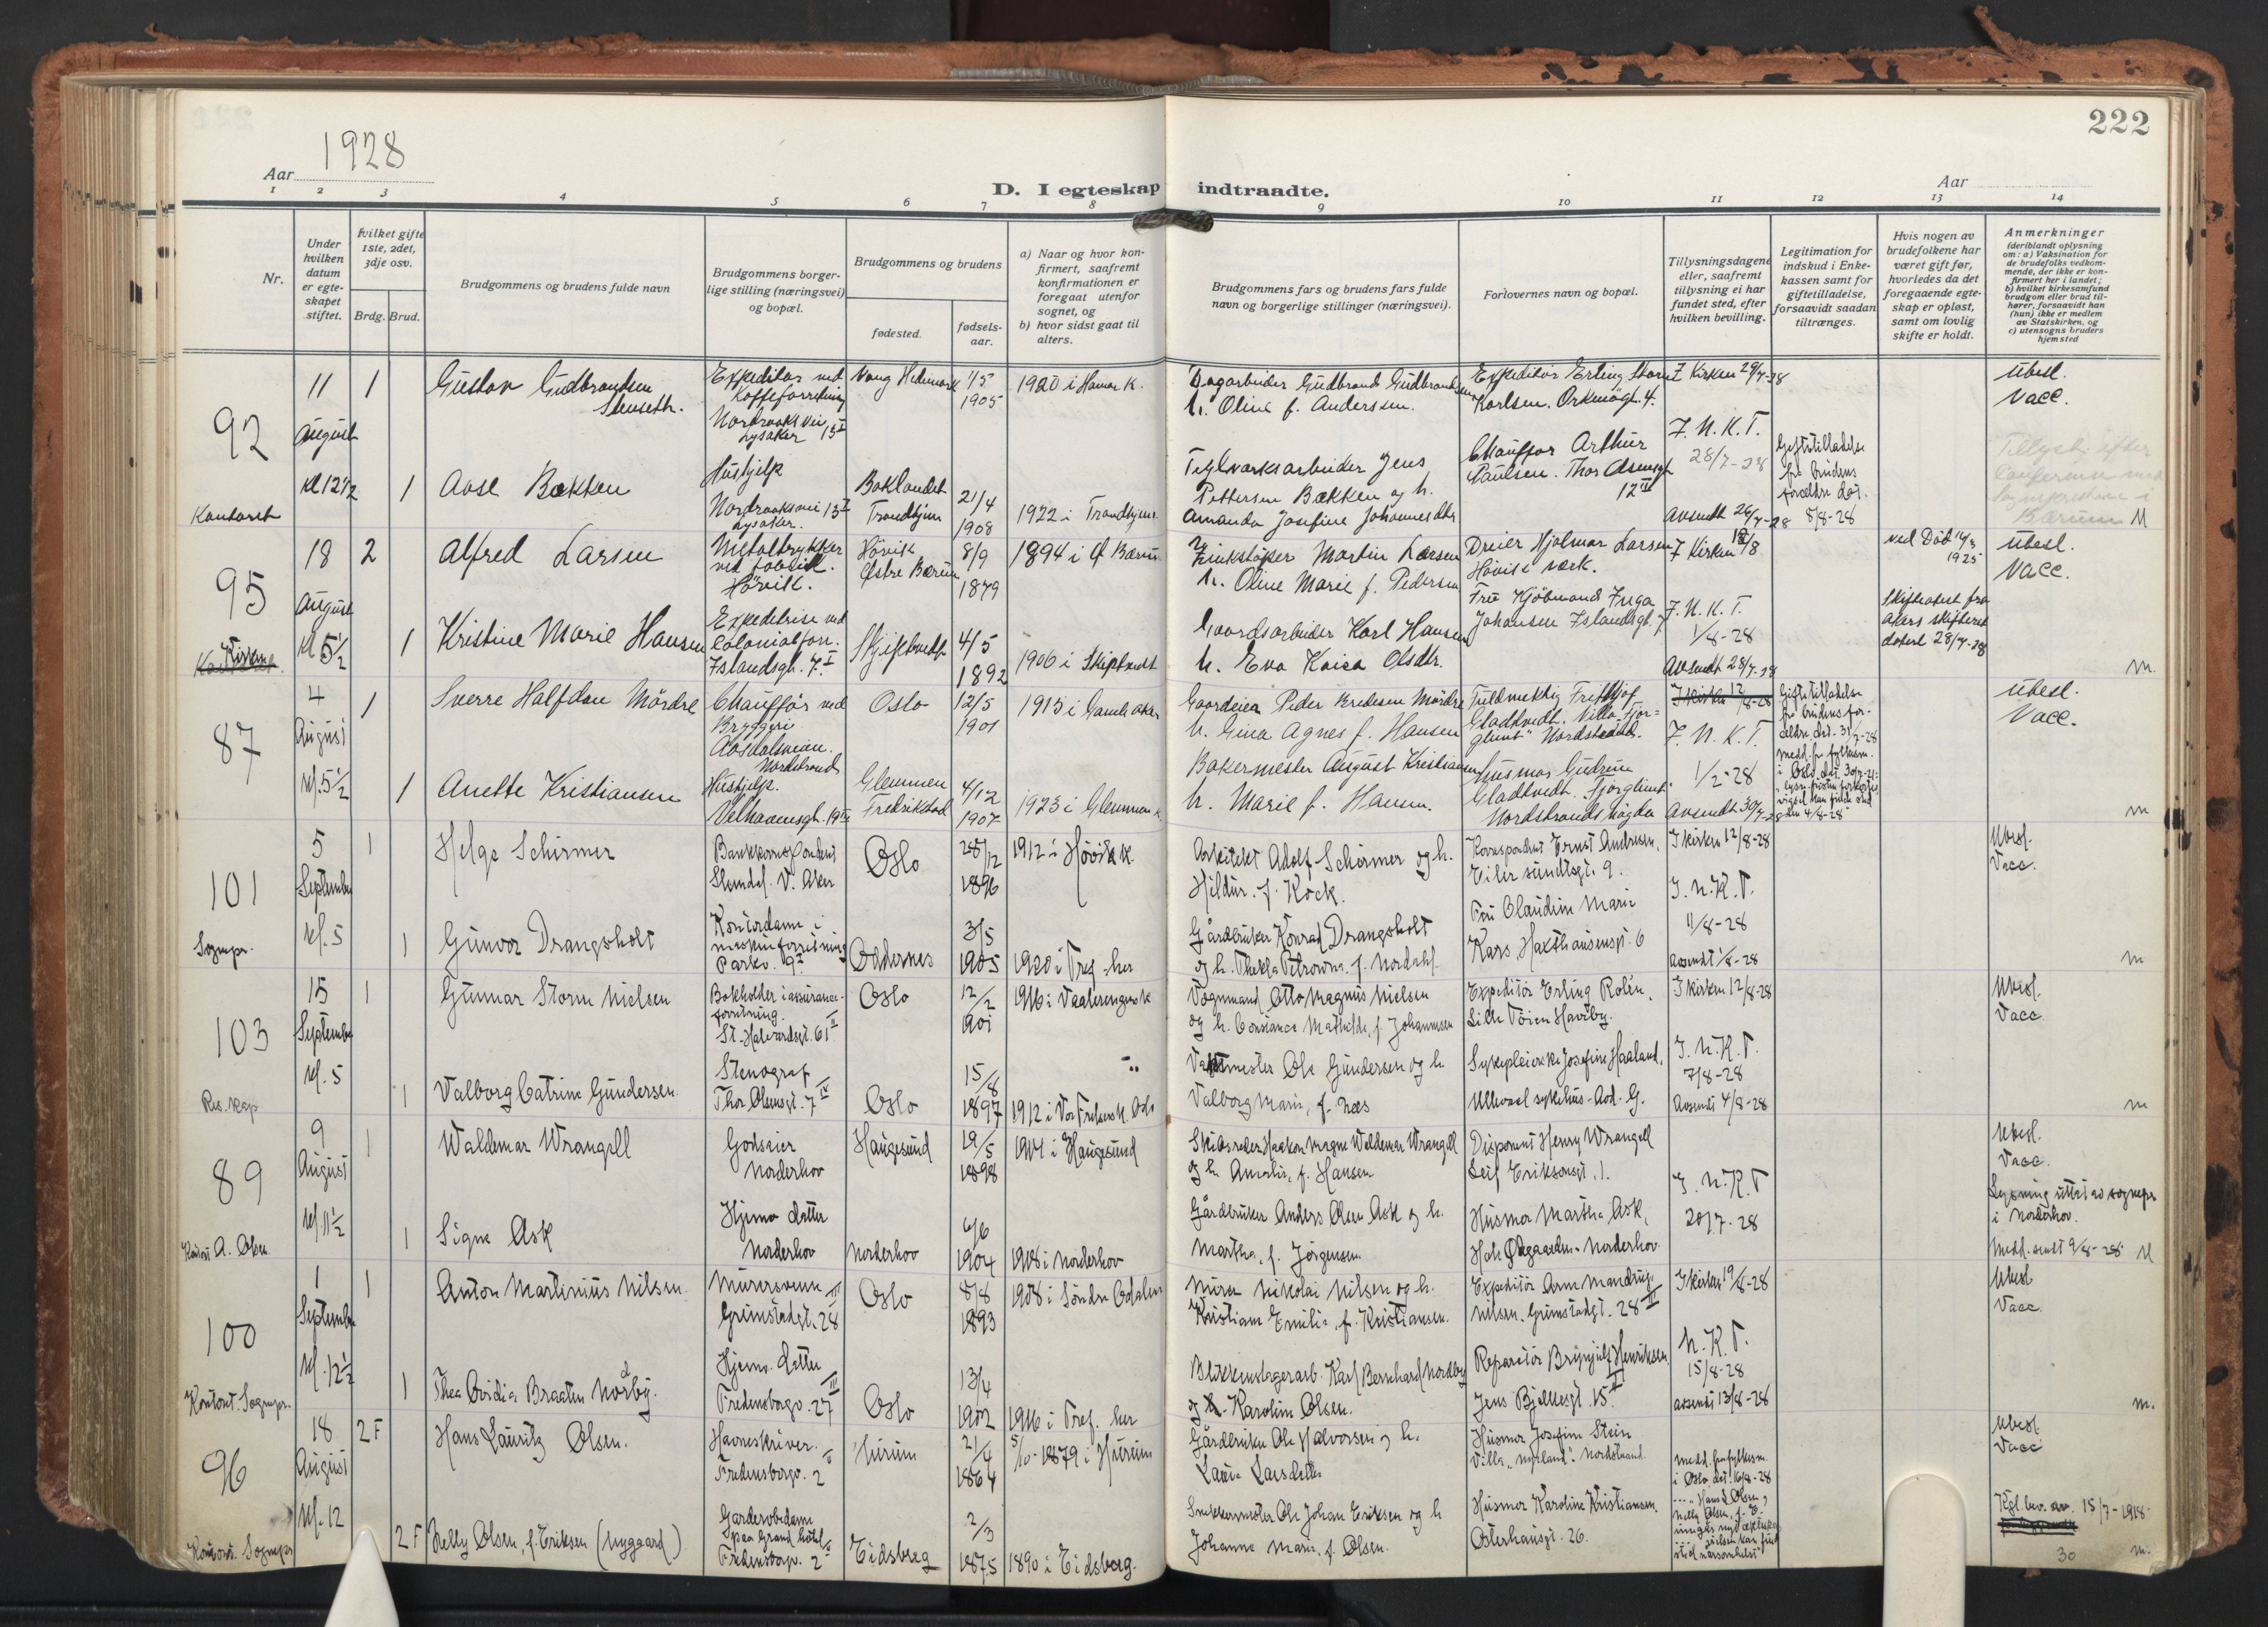 222
1928
Aar
Aar
D. I egteskap indtraadte.
1 2 3 4 5 6 7 8 9 10 11 12 13 14
Nr.
Under hvilken datum er egteskapet stiftet.
hvilket gifte 1ste, 2det, 3dje osv.
Brdg. Brud.
Brudgommens og brudens fulde navn
Brudgommens borgerlige stilling (næringsvei) og bopæl.
Brudgommens og brudens
fødested.
fødselsaar.
a) Naar og hvor konfirmert, saafremt konfirmationen er foregaat utenfor sognet, og
b) hvor sidst gaat til alters.
Brudgommens fars og brudens fars fulde navn og borgerlige stillinger (næringsvei).
Forlovernes navn og bopæl.
Tillysningsdagene eller, saafremt tillysning ei har fundet sted, efter hvilken bevilling.
Legitimation for indskud i Enkekassen samt for giftetilladelse, forsaavidt saadan tiltrænges.
Hvis nogen av brudefolkene har været gift før, hvorledes da det foregaaende egteskap er opløst, samt om lovlig skifte er holdt.
Anmerkninger
(deriblandt oplysning om: a) Vaksination for de brudefolks vedkommende, der ikke er konfirmert her i landet, b) hvilket kirkesamfund brudgom eller brud tilhører, forsaavidt han (hun) ikke er medlem av Statskirken, og c) utensogns bruders hjemsted
92
11 August kl 12 1/2
Kontoret
1 Gustav Gudbrandsen Stenseth.
Expeditør ved Kaffeforretning
Nordraaks vei 13 I Lysaker
Vang Hedemark 1/5 1905
1920 i Hamar K.
Dagarbeider Gudbrand Gudbrandsen
h. Oline f. Anderssen.
Expeditør Erling Storm
Karlsen. Orknøgt. 4.
I Kirken 29/7-28
Ubesl.
Vacc.
1 Aase Bakken
Hushjelp
Nordraaksvei 13 I Lysaker.
Baklandet Trondhjem 21/4 1908
1922 i Trondhjem
Teglverksarbeider Jens
Pettersen Bakken og h.
Amanda Josefine Johannesdtr
Chauffør Arthur
Paulsen. Thor Olsensgt 12 III
I. N. K. T.
28/7-28
Avsendt 26/7-28
Giftetilladelse
fra brudens
forældre dat.
8/8-28
M
95
18 August Kl 5 1/2
Kirken
2 Alfred Larsen
Metaltrykker
ved fabrik.
Hövik.
Hövik
Østre Bærum 8/9 1879
1894 i Ø Bærum
Zinkstøper Martin Larsen
h. Oline Marie f. Pedersen
Dreier Hjalmar Larsen
Hövik verk.
I Kirken 12/8
ved Død 14/3 1925
Ubesl.
Vacc.
1 Kristine Marie Hansen
Expeditrise ved
Colonialforr.
Islandsgt. 7. I
Skjiptvedt 4/5 1892
1906 i Skiptvedt
Gaardsarbeider Karl Hansen
h. Eva Kaisa Olsdtr.
Fru Kjöbmand Inga
Johansen Islandsgt. 7
I. N. K. T.
1/8-28
Avsendt 28/7-28
Skifteatest fra
Akers skifteret
datert 28/7-28
m.
87
4 August kl. 5 1/2
1 Sverre Halfdan Mördre
Chauffør ved
Bryggeri
Aasdalsveien.
Nordstrand
Oslo 12/5 1901
1915 i Gamle Aker
Gaardeier Peder Mördre
h. Gina Agnes f. Hansen
Fuldmektig Fritthjof
Gladtvedt. Villa Fjorglimt" Nordstrand.
I Kirken 12/8-28
I. N. K. T.
Giftetilladelse
fra brudens forældre dat. 31/7-28
Ubesl.
Vacc.
1 Anette Kristiansen
Hushjelp.
Velhavensgt. 19
Glemmen
Fredrikstad 4/12 1907
1923 i Glemmen K.
Bakermester August Kristiansen
h. Marie f. Hansen.
Husmor Gudrun
Gladtvedt. Fjorglimt
Nordstrandshøgda
1/2-28
Avsendt 30/7-28
m
101
5 September kl. 5
Sognepr.
1 Helge Schirmer
Bankkorrespondent
Slemdal. V. Aker
Oslo 28/12 1896
1912 i Høvik K.
Arkitekt Adolf Schirmer og h.
Hildur. f. Kock.
Korrespondent Ernst Andresen.
Eiler Sundtsgt. 9.
I kirken 12/8-28
Ubesl.
Vacc.
1 Gunvor Drangsholt
Kontordame i
maskinforretning
Parkv. 9 I
Oddernes 3/5 1905
1920 i Tref. her
Gårdbruker Konrad Drangsholt
og h. Thekla Petrowna. f. Nordahl.
Fru Claudine Marie
Kars, Haxthausensgt. 6
I. N. K. T.
11/8-28
avsendt 1/8-28
m
103
15 September kl. 5
Res. kap
1 Gunnar Storm Nielsen
Bokholder i assuranceforretning.
St. Halvardsgt. 61 II
Oslo 12/2 1901
1916 i Vaalerengens k
Vognmand Otto Magnus Nielsen
og h. Constance Mathilde, f. Johannesen
Expeditör Erling Rolén.
Lille Töien Haveby.
I kirken 12/8-28
Ubesl.
Vacc.
1 Valborg Catrine Gundersen.
Stenograf
Thor Olsensgt. 7 IV
Oslo 15/8 1897
1912 i Vor Frelsers K. Oslo
Vaktmester Ole Gundersen og h
Valborg Marie, f. Næs
Sykepleierske Josefine Haaland,
Ullevaal sykehus - Avd. G.
I. N. K. T.
7/8-28
Avsendt 4/8-28
m
89
9 August kl. 11 1/2
Kontor A. Olsen
1 Waldemar Wrangell
Godseier
Norderhov
Haugesund 19/5 1898
1914 i Haugesund
Skibsreder Haakon Magne Waldemar Wrangell
og h. Amalie, f. Hansen
Disponent Henry Wrangell
Leif Eriksonsgt. 1.
I. N. K. T
20/7-28
Ubesl.
Vacc.
Lysning uttat av sognepr
i Norderhov.
Medd. sendt 9/8-28 M
1 Signe Ask
Hjemv. datter
Norderhov
Norderhov 6/6 1904
1918 i Norderhov
Gårdbruker Anders Olsen Ask og h.
Martha, f. Jörgensen
Husmor Martha Ask,
Hole Norderhov
100
1 September kl. 12 1/2
Kontoret. Sognepr.
1 Anton Martinius Nilsen.
Murersvenn
Grimstadgt. 28 III
Oslo 8/8 1893
1908 i Söndre Odalen
Murer Nikolai Nilsen og h.
Kristiane Emilie, f. Kristiansen.
Expeditör Arne Mandrup
Nilsen. Grimstadgt. 28 III
I kirken 19/8-28
Ubesl
Vacc.
1 Thea Ovidia Braaten Nordby.
Hjemv. datter
Fredensborgv. 27 III
Oslo 13/4 1902
1916 i Tref. her
Blikkenslagerarb. Karl Bernhard Nordby
og h. Karoline Olsen.
Reparatör Brynjulf Henriksen,
Jens Bjelkesgt. 15 II
N. K. T.
15/8-28
avsendt 13/8-28
m.
96
18 August kl. 12
Kontoret. Sognepr
2 F Hans Lauritz Olsen.
Havneskriver.
Fredensborgv. 2
Hurum 21/4 1864
5/10-1879 i Hurum
Gårdbruker Ole Halvorsen og h.
Laura Larsdatter
Husmor Josefine Stein
Villa "Nyland". Nordstrand.
Medd. fra fylkesm.
i Oslo dat. 16/8-28
Ubesl
Vacc
2 F Nelly Olsen, f. Eriksen (Nygaard)
Garderobedame
paa Grand hotel
Fredensborgv. 2
Eidsberg 2/3 1875
1890 i Eidsberg.
Snekkermester Ole Johan Eriksen og h
Johanne Marie, f. Olsen.
Husmor Karoline Kristiansen.
Osterhausgt. 26.
Kgl. bev. av 15/7-1918
30 m.